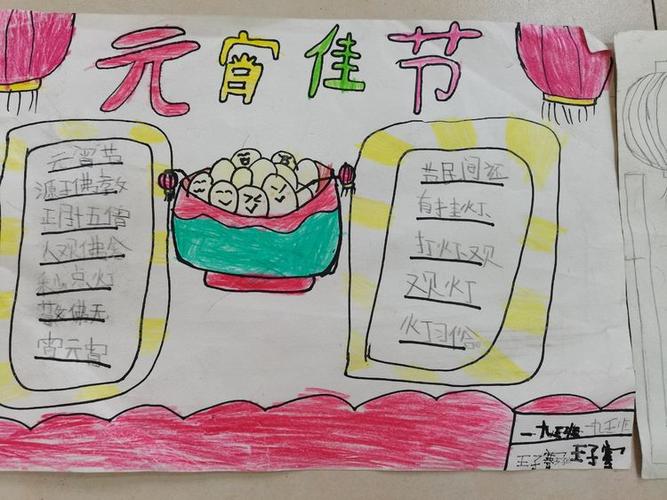 元宵佳节
元宵节
源于佛教
正月十五僧
人观佛舍
利点灯
敬佛无
宵元宵
当民间还
有挂灯
打灯观
观灯
灯习俗
一九班 九班
王子 王子